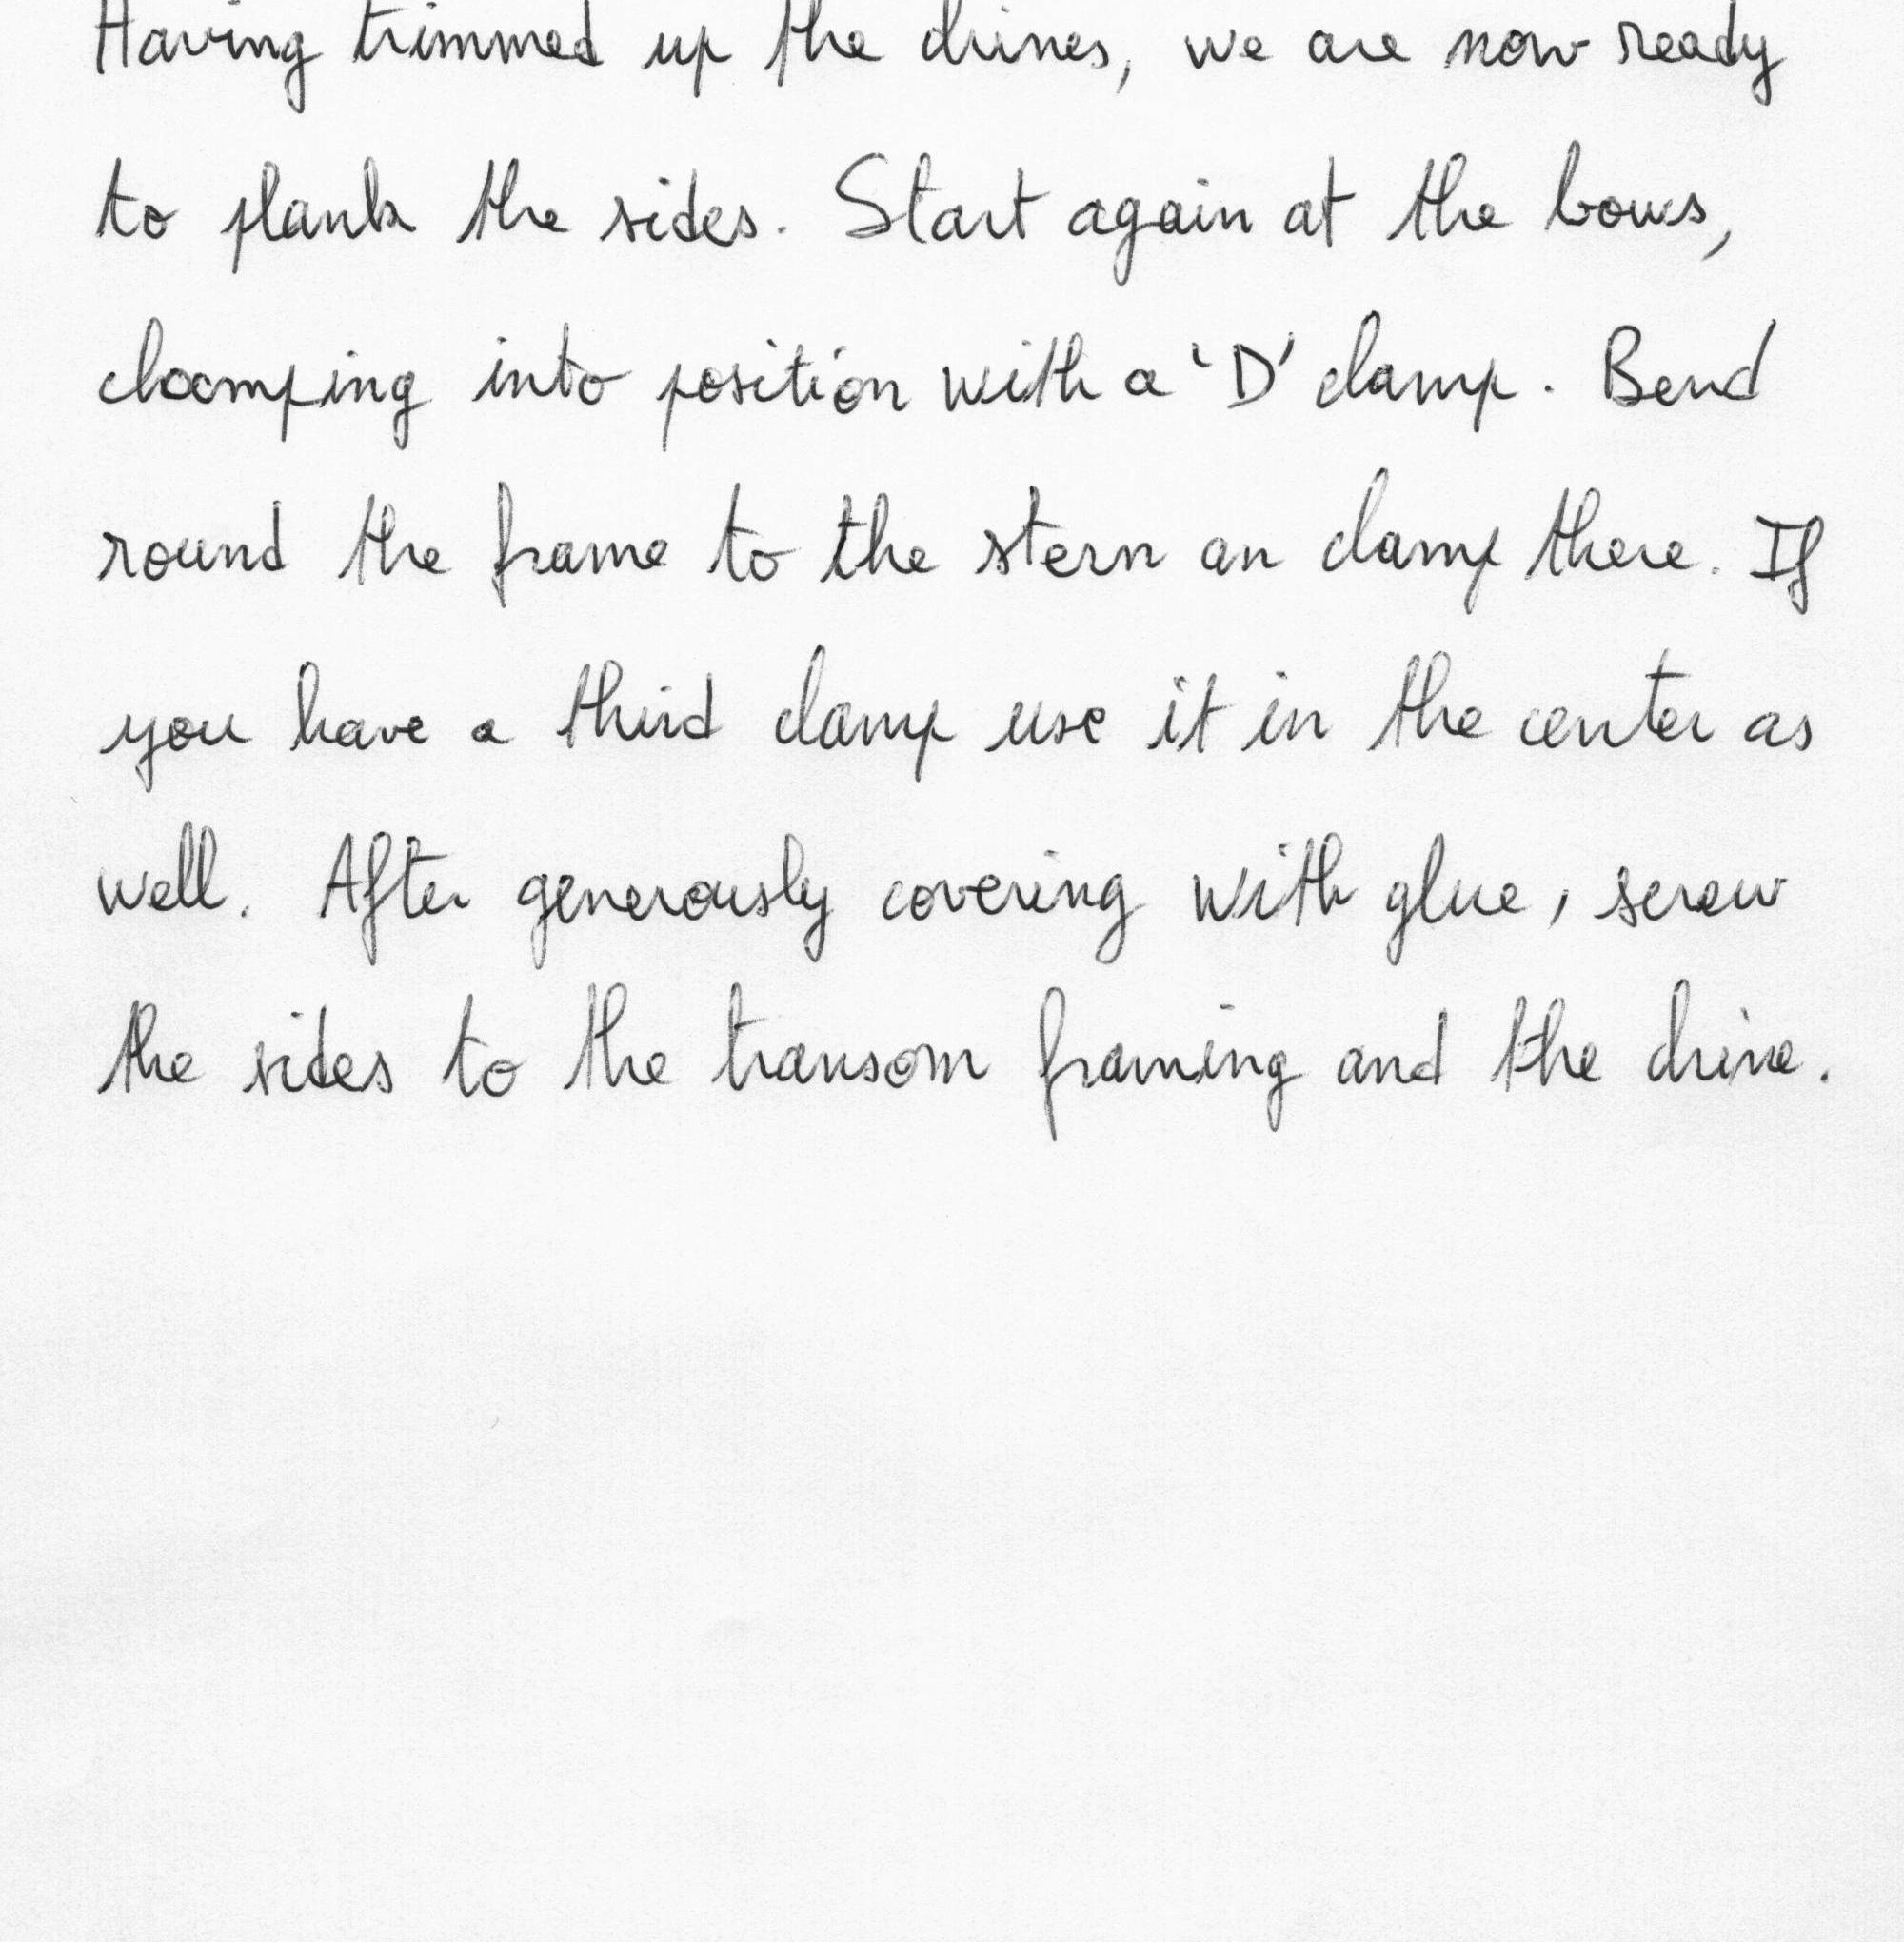 Having trimmed up the chines, we are now ready
to plank the sides. Start again at the bows,
clamping into position with a 'D' clamp. Bend
round the frame to the stern an clamp there. If
you have a third clamp use it in the center as
well. After generously covering with glue, screw
the sides to the transom framing and the chine.